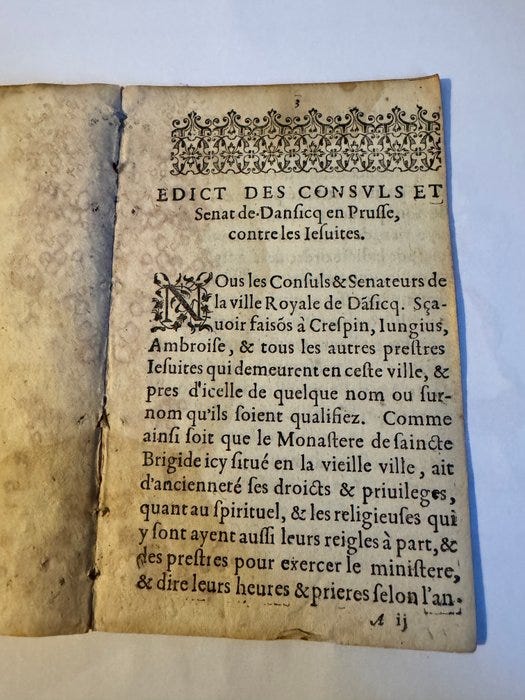 3
EDICT DES CONSVLS ET
Senat de Danſicq en Pruſſe,
contre les Ieſuites.
NOus les Conſuls & Senateurs de
la ville Royale de Dãſicq. Sça-
uoir faiſõs à Creſpin, Iungius,
Ambroiſe, & tous les autres preſtres
Ieſuites qui demeurent en ceſte ville, &
pres d'icelle de quelque nom ou ſur-
nom qu'ils ſoient qualifiez. Comme
ainſi ſoit que le Monaſtere de ſaincte
Brigide icy ſitué en la vieille ville, ait
d'ancienneté ſes droicts & priuileges,
quant au ſpirituel, & les religieuſes qui
y ſont ayent auſſi leurs reigles à part, &
des preſtres pour exercer le miniſtere,
& dire leurs heures & prieres ſelon l'an-
A ij